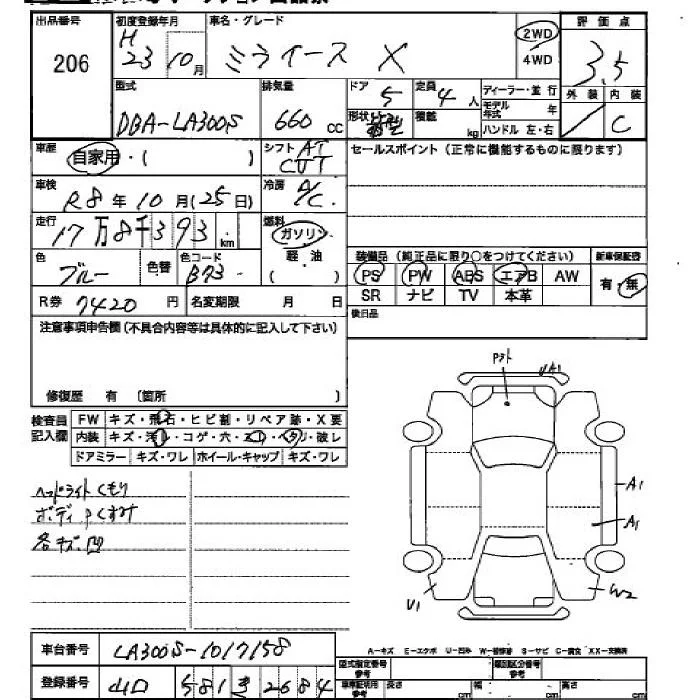 出品番号 初度登録年月 車名・グレード 評価点
206 H23年10月 ミライース X 2WD 4WD 3.5
型式 排気量 ドア 定員 ディーラー・並行 外装 内装
DBA-LA300S 660cc 5 4人 モデル年式 年 C
形状 積載 kg ハンドル 左・右
車歴 自家用・( ) シフト AT CVT セールスポイント(正常に機能するものに限ります)
車検 R8年10月(25日) 冷房 A/C
走行 17万8千393km 燃料 ガソリン 軽油 ( )
色 ブルー 色替 色コード B73 装備品(純正品に限り○をつけてください) 新車保証書
PS PW ABS エアB AW 有・無
R券 7420円 名変期限 月 日 SR ナビ TV 本革
後日品
注意事項申告欄(不具合内容等は具体的に記入して下さい)
修復歴 有 〔箇所 〕
検査員記入欄 FW キズ・飛石・ヒビ割・リペア跡・X要
内装 キズ・汚レ・コゲ・穴・スレ・ヘタリ・破レ
ドアミラー キズ・ワレ ホイール・キャップ キズ・ワレ
ヘッドライトくもり
ボディ
各キズ凹
A1
A1
A1
U1 W2
A-キズ E-エクボ U-凹み W-補修跡 S-サビ C-腐食 XX-交換済
車台番号 LA300S-1017158 型式指定番号 参考 類別区分番号 参考
登録番号 山口 581 き 2684 車庫証明用 参考 長さ cm 幅 cm 高さ cm